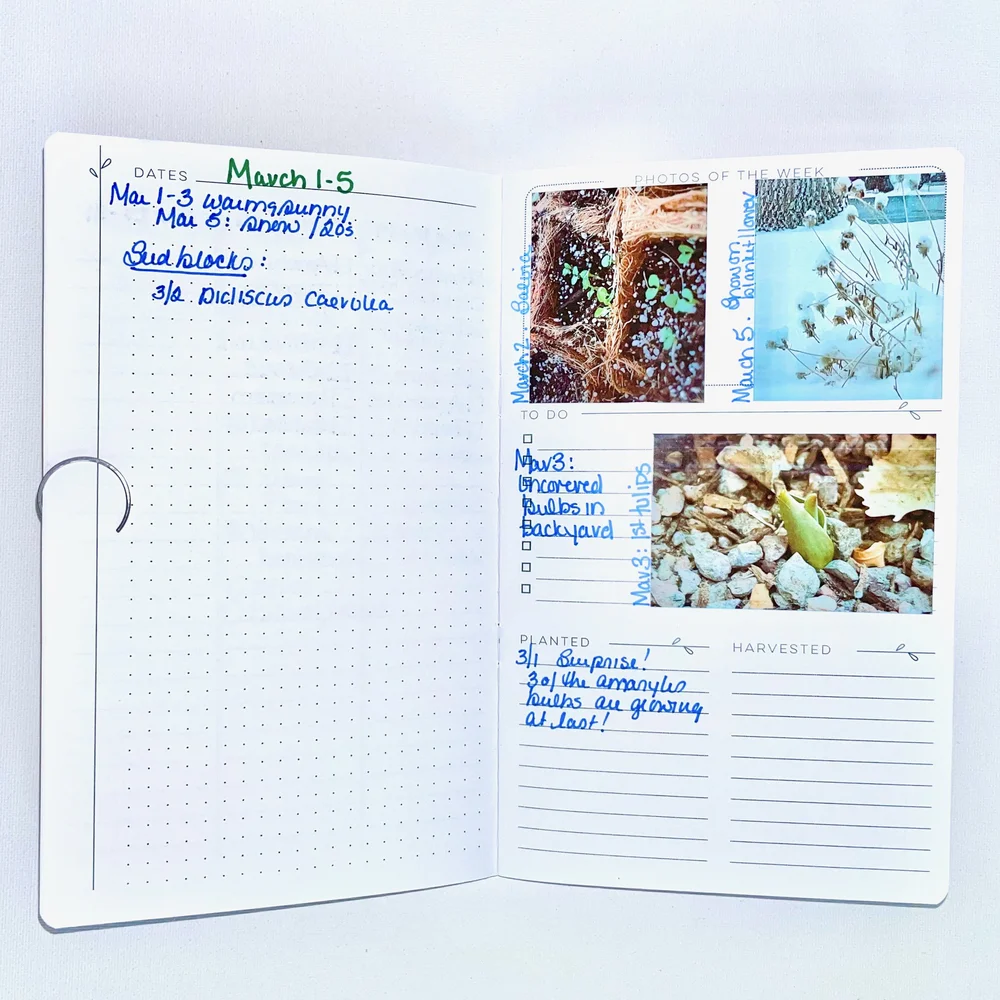 DATES March 1-5
Mar 1-3 warm & sunny
Mar 5: snow / 20s
Seed blocks:
3/2 Didiscus Caerulea
PHOTOS OF THE WEEK
March 2. Salvia
March 5. Snow on
blanket flower
TO DO
Mar 3:
Uncovered
bulbs in
backyard
Mar 3: 1st tulips
PLANTED
3/1 Surprise!
3 of the amaryllis
bulbs are growing
at last!
HARVESTED